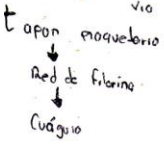 Vía
t apon plaquetario
Red de fibrina
Cuágulo